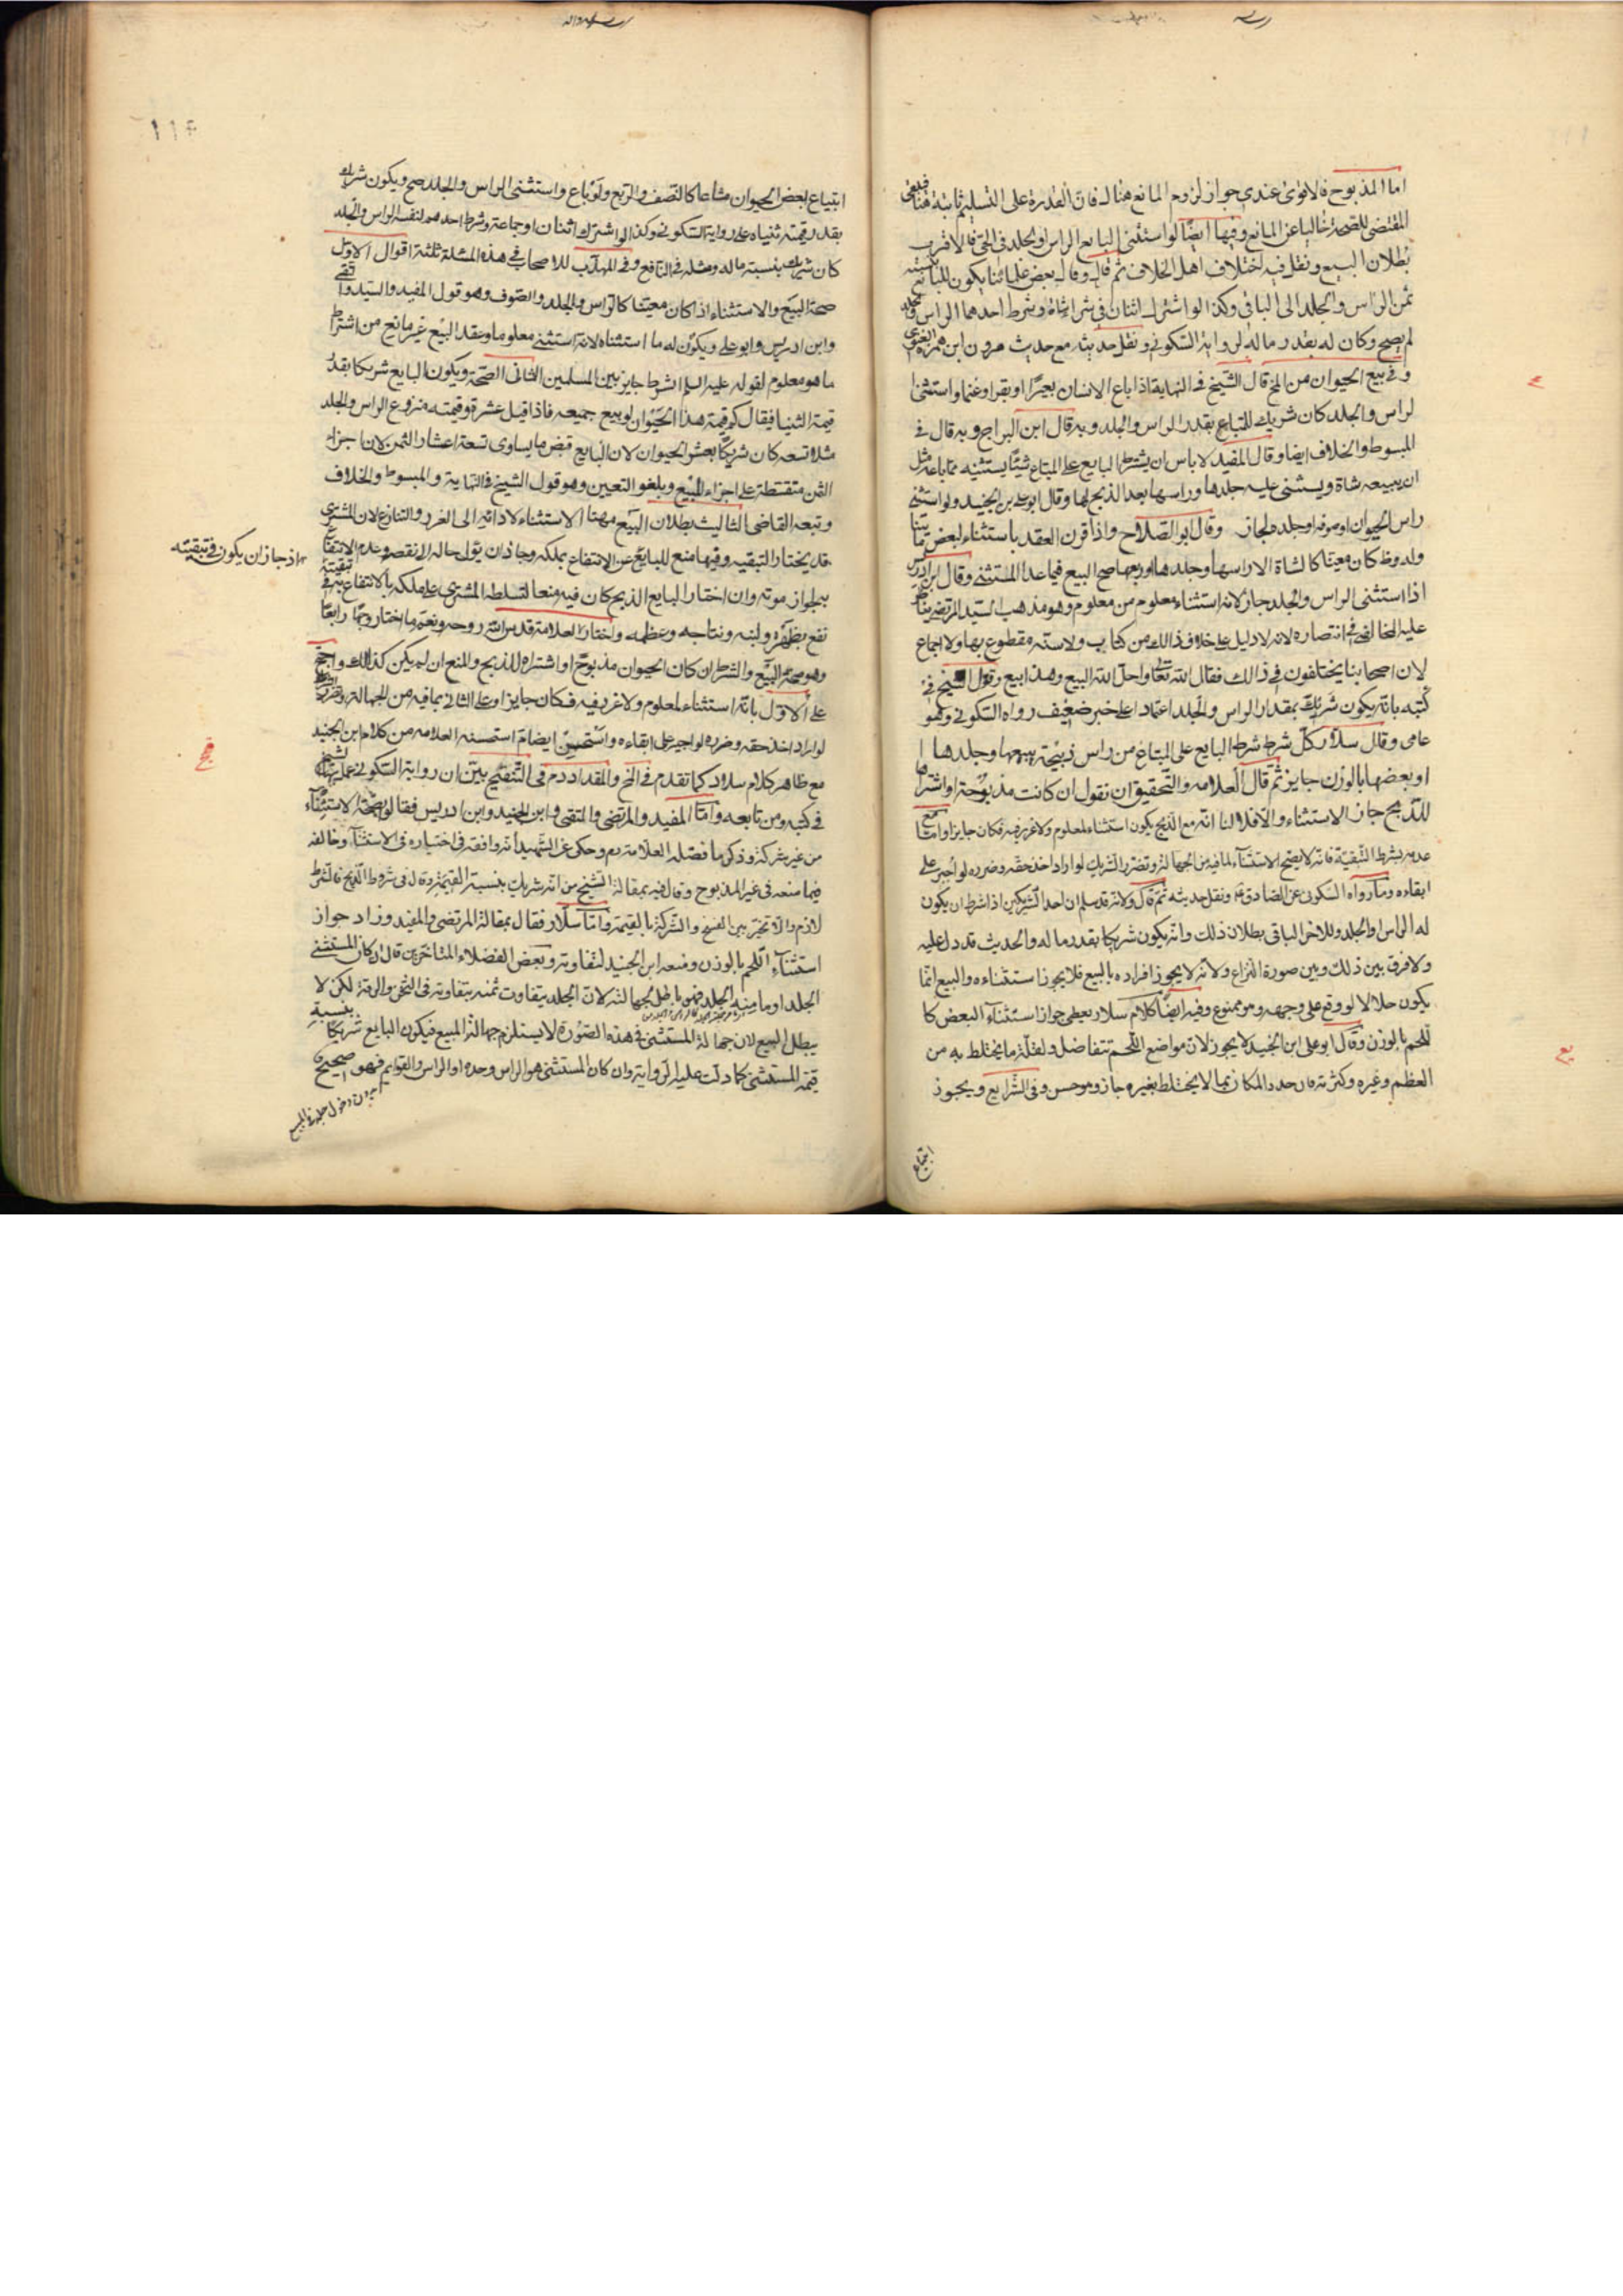 اما المذبوح فالاقوى عندي جواز لزوم المانع هنالك فان القدرة على التسليم ثابتة هنا فيبقى
المقتضي للصحة خاليا عن المانع وفيها ايضا لو استثنى البايع الراس او الجلد في الحي فالاقرب
بطلان البيع ونقل فيه اختلاف اهل الخلاف ثم قال وقال بعض علمائنا يكون للبايع بنسبة
ثمن الراس والجلد الى الباقي وكذا لو اشترك اثنان في شراء شاة وشرط احدهما الراس والجلد
لم يصح وكان له بقدر ماله لرواية السكوني ونقل حديثه مع حديث هرون ابن حمزة الغنوي
وفي بيع الحيوان من المخ قال الشيخ في النهاية اذا باع الانسان بعيرا او بقرا او غنما واستثنى
الراس والجلد كان شريك للمبتاع بقدر الراس والجلد وبه قال ابن البراج وبه قال في
المبسوط والخلاف ايضا وقال المفيد لا باس ان يشترط البايع على المبتاع شيئا يستثنيه مما باعه مثل
ان يبيعه شاة ويستثنى عليه جلدها وراسها بعد الذبح لها وقال ابو علي بن الجنيد ولو استثنى
راس الحيوان او صوفه او جلده لجاز وقال ابو الصلاح واذا قرن العقد باستثناء لبعض ما
كان معينا كالشاة الا راسها وجلدها او ربعها صح البيع فيما عدا المستثنى وقال ابن ادريس
اذا استثنى الراس والجلد جاز لانه استثناء معلوم من معلوم وهو مذهب السيد المرتضى
عليه المخالف في انتصاره لانه لا دليل على خلاف ذلك من كتاب ولا سنة مقطوع بها ولا اجماع
لان اصحابنا يختلفون في ذلك فقال الله تعالى واحل الله البيع وهذا بيع وقول الشيخ في
كتبه بانه يكون شريكه بمقدار الراس والجلد اعتمادا على خبر ضعيف رواه السكوني وهو
عامي وقال سلار كل شرط شرط البايع على المبتاع من راس ذبيحة يبيعها وجلدها
او بعضها بالوزن جايز ثم قال العلامه والتحقيق ان نقول ان كانت مذبوحة او اشتراها
للذبح جاز الاستثناء والا فلا لنا انه مع الذبح يكون استثناء لمعلوم ولا غرر فيه فكان جايزا واما مع
عدمه بشرط التبقية فانه لا يصح الاستثناء لما فيه من الجهالة وتضرر الشريك لو اراد اخذ حقه وضرره لو اجبر على
ابقاءه وما رواه السكوني عن الصادق ع ونقل حديثه ثم قال ولانه قد سلم ان احد الشريكين اذا شرط ان يكون
له الراس او الجلد وللاخر الباقي بطلان ذلك وانه يكون شريكا بقدر ماله والحديث قد دل عليه
ولا فرق بين ذلك وبين صورة النزاع ولانه لا يجوز افراده بالبيع فلا يجوز استثناءه والبيع انما
يكون حلالا لو وقع على وجهه وهو ممنوع وفيه ايضا كلام سلار يعطي جواز استثناء البعض كا
للحم بالوزن وقال ابو علي ابن الجنيد لا يجوز لان مواضع اللحم تتفاضل ولقلة ما يختلط به من
العظم وغيره وكثرته فان حدد المكان بما لا يختلط بغيره جاز وهو حسن وفي الشرايع ويجوز
ابتياع
١١٤
ابتياع بعض الحيوان مشاعا كالنصف والربع ولو باع واستثنى الراس والجلد صح ويكون شريك
بقدر قيمته ثنياه على رواية السكوني وكذا لو اشترك اثنان او جماعة وشرط احدهم لنفسه الراس والجلد
كان شريك بنسبة ماله ومثله في النافع وفي المهذب للاصحاب في هذه المسئلة ثلثة اقوال الاول
صحة البيع والاستثناء اذا كان معينا كالراس والجلد والصوف وهو قول المفيد والسيد والتقي
وابن ادريس وابو علي ويكون له ما استثناه لانه استثنى معلوما وعقد البيع غير مانع من اشتراط
ما هو معلوم لقوله عليه السلم الشرط جايز بين المسلمين الثاني الصحة ويكون البايع شريكا بقدر
قيمة الثنيا فيقال كم قيمة هذا الحيوان لو بيع جميعه فاذا قيل عشرة وقيمته منزوع الراس والجلد
مثلا تسعه كان شريكا بعشر الحيوان لان البايع قبض ما يساوي تسعة اعشار الثمن لان اجزاء
الثمن متقسطة على اجزاء المبيع ويلغو التعيين وهو قول الشيخ في النهاية والمبسوط والخلاف
وتبعه القاضي الثالث بطلان البيع مهنا الاستثناء لادائه الى الغرر والتنازع لان المشتري
قد يختار التبقيه وفيها منع للبايع عن الانتفاع بملكه وجاز ان يؤل حاله الى نقصه وعدم الانتفاع
به لجواز موته وان اختار البايع الذبح كان فيه منعا لتسلط المشتري على ملكه بالانتفاع به في تبقيته
اذ جاز ان يكون في تبقيته
نفع بظهره ولبنه ونتاجه وعظمه واختار العلامة قدس الله روحه ونعم ما اختار وجها رابعا
وهو صحة البيع والشرط ان كان الحيوان مذبوحا او اشتراه للذبح والمنع ان لم يكن كذلك واحتج
على الاول بانه استثناء لمعلوم ولا غرر فيه فكان جايزا وعلى الثاني بما فيه من الجهالة وتضرر
لو اراد اخذ حقه وضرره لو اجبر على ابقاءه واستحسن ايضا ما استحسنه العلامه من كلام ابن الجنيد
مع ظاهر كلام سلار كما تقدم في المخ والمقداد رحم في التنقيح بين ان رواية السكوني عمل بها الشيخ
في كتبه ومن تابعه واما المفيد والمرتضى والتقي وابن الجنيد وابن ادريس فقالوا بصحة الاستثناء
من غير شركة وذكر ما فصله العلامة رحم وحكى عن الشهيد انه وافقه في اختياره في الاستثناء وخالفه
فيما منعه في غير المذبوح وقال فيه بمقالة الشيخ من انه شريك بنسبة القيمة وقال في شروط الذبح فالشرط
لازم والا تخير بين الفسخ والشركة بالقيمة واما سلار فقال بمقالة المرتضى والمفيد وزاد جواز
استثناء اللحم بالوزن ومنعه ابن الجنيد لتفاوته وبعض الفضلاء المتاخرين قال ان كان المستثنى
الجلد او ما منه الجلد فهي باطل لجهالته لان الجلد يتفاوت ثمنه بتفاوته في الثخن والرقة لكن لا
يبطل البيع لان جهالة المستثنى في هذه الصورة لا يستلزم جهالة المبيع فيكون البايع شريكا بنسبة
قيمة المستثنى كما دلت عليه الرواية وان كان المستثنى هو الراس وحده او الراس والقوايم فهو صحيح